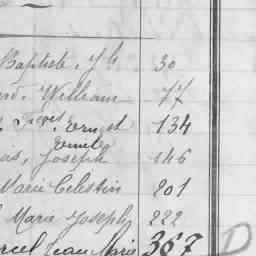 Baptiste, J B 30
William 77
Ernest 134
Emile
Joseph 146
Marie Celestin 201
Marie Joseph 222
Jean Marie 367 D